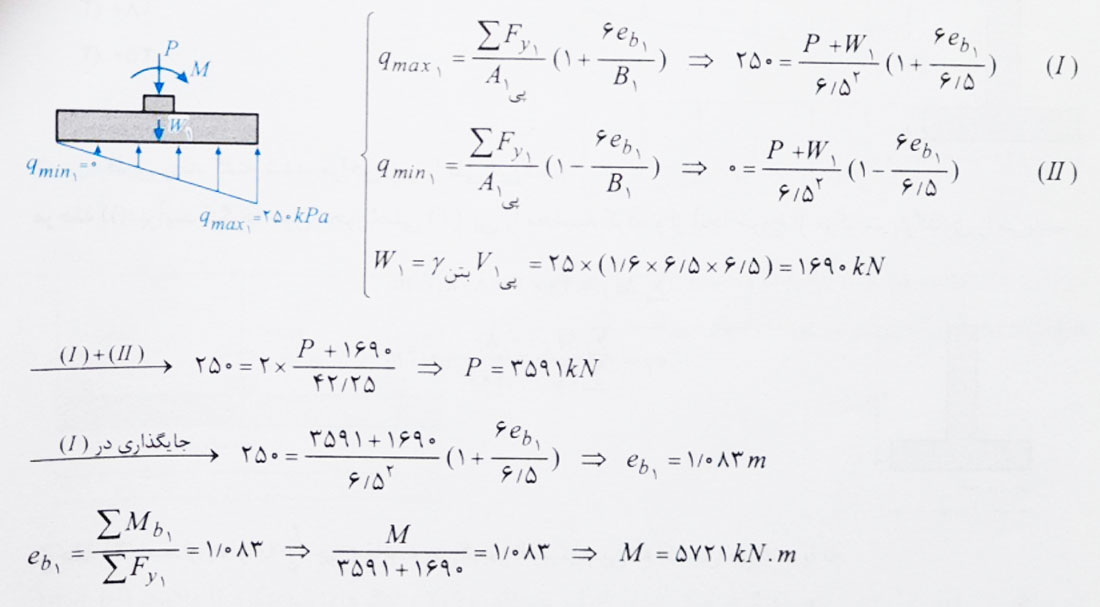 P
M
W₁
q_min₁=۰
q_max₁=۲۵۰kPa
q_max₁ = ∑F_y₁ / A_پی₁ (۱+ ۶e_b₁ / B₁) ⇒ ۲۵۰ = P+W₁ / ۶/۵² (۱+ ۶e_b₁ / ۶/۵) (I)
q_min₁ = ∑F_y₁ / A_پی₁ (۱− ۶e_b₁ / B₁) ⇒ ۰ = P+W₁ / ۶/۵² (۱− ۶e_b₁ / ۶/۵) (II)
W₁ = γ_بتن V_پی₁ = ۲۵×(۱/۶×۶/۵×۶/۵) = ۱۶۹۰ kN
(I)+(II) → ۲۵۰ = ۲× P+۱۶۹۰ / ۴۲/۲۵ ⇒ P = ۳۵۹۱kN
جایگذاری در (I) → ۲۵۰ = ۳۵۹۱+۱۶۹۰ / ۶/۵² (۱+ ۶e_b₁ / ۶/۵) ⇒ e_b₁ = ۱/۰۸۳m
e_b₁ = ∑M_b₁ / ∑F_y₁ = ۱/۰۸۳ ⇒ M / ۳۵۹۱+۱۶۹۰ = ۱/۰۸۳ ⇒ M = ۵۷۲۱kN.m